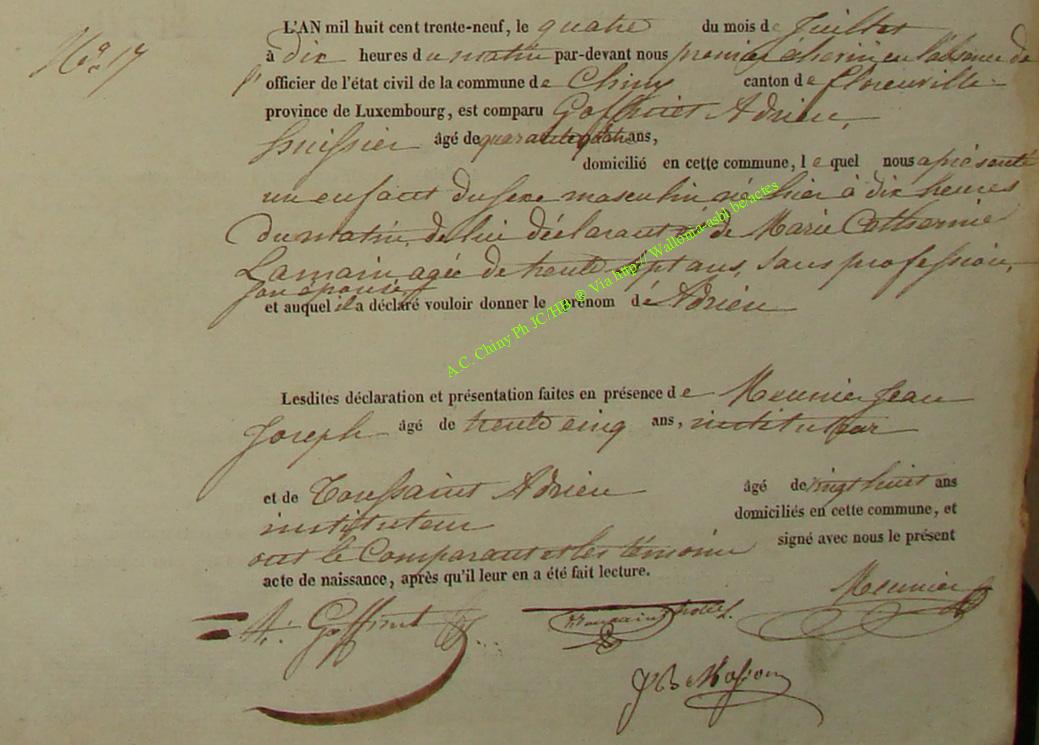 No 17
L'AN mil huit cent trente-neuf, le quatre du mois de Juillet
à dix heures du matin par-devant nous premier echevin en l'absence de
l'officier de l'état civil de la commune de Chiny canton de florenville
province de Luxembourg, est comparu Goffinet Adrien,
huissier âgé de quarante quatre ans,
domicilié en cette commune, lequel nous a présenté
un enfant du sexe masculin né hier à dix heures
du matin, de lui déclarant et de Marie Catherine
Lamain agée de trente sept ans, sans profession,
son épouse
et auquel il a déclaré vouloir donner le prénom de Adrien
A.C. Chiny Ph JC/HB ® Via http:// Wallonia-asbl.be/actes
Lesdites déclaration et présentation faites en présence de Meunier Jean
Joseph âgé de trente cinq ans, instituteur
et de Toussaint Adrien âgé de vingt huit ans
instituteur domiciliés en cette commune, et
ont le Comparant et les témoins signé avec nous le présent
acte de naissance, après qu'il leur en a été fait lecture.
A. Goffinet Toussaint Meunier
JB Masson